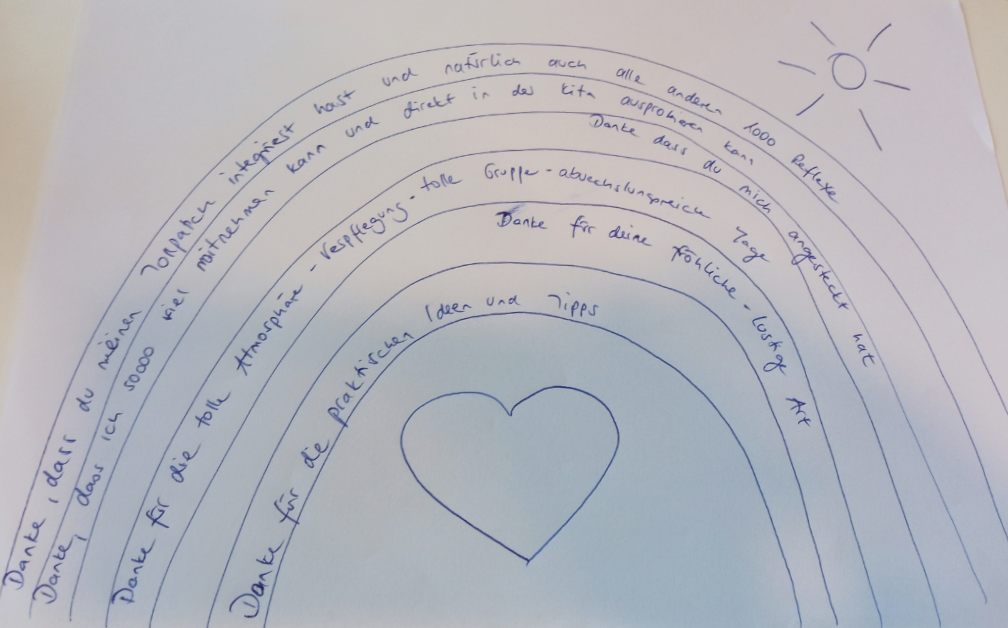 Danke, dass du meinen Torpatch integriest hast und natürlich auch alle anderen 1000 Reflexe
Danke, dass ich 50000 viel mitnehmen kann und direkt in der Kita ausprobieren kann
Danke dass du mich angesteckt hat
Danke für die tolle Atmosphäre - Verpflegung - tolle Gruppe - abwechslungsreich Tage
Danke für deine fröhliche - lustige Art
Danke für die praktischen Ideen und Tipps